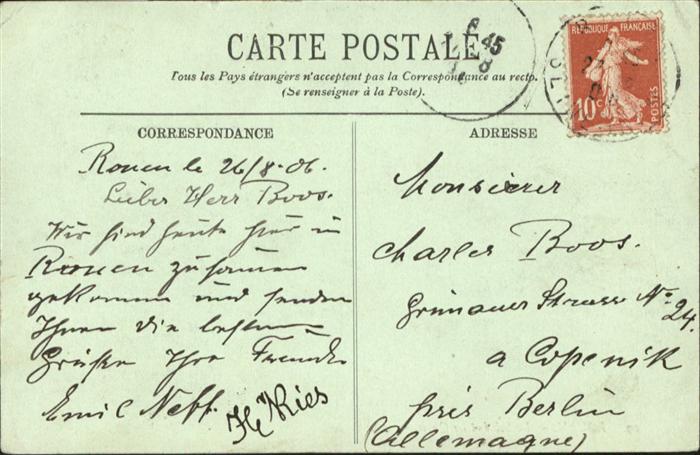 CARTE POSTALE
Tous les Pays étrangers n'acceptent pas la Correspondance au recto.
(Se renseigner à la Poste).
CORRESPONDANCE
Rouen le 26/8-06.
Lieber Herr Boos.
Wir sind heute hier in
Rouen zusammen
gekommen und senden
Ihnen die besten
Grüße Ihre Freunde
Emil Neff. H. Kries
ADRESSE
Monsieur
Charles Boos.
Grünauer Strasse No 24.
a Copenik
près Berlin
(Allemagne)
REPUBLIQUE FRANÇAISE
10c
POSTES
6 45
8
27